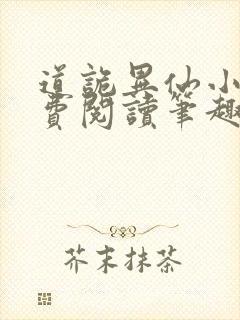 道詭異仙小
費閱讀筆趣
芥末抹茶